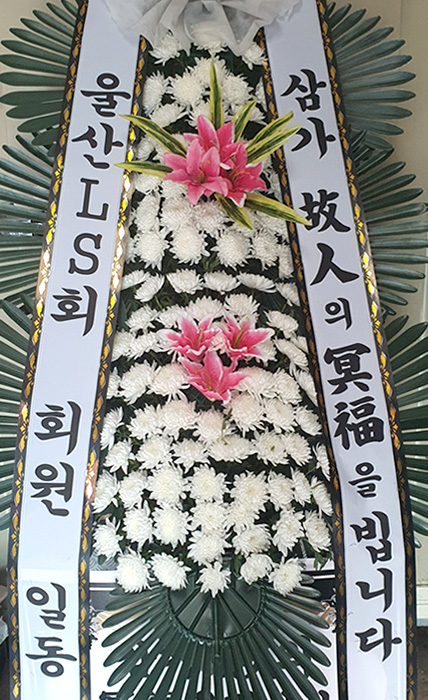 삼가 故人의 冥福을 빕니다
울산LS회 회원 일동